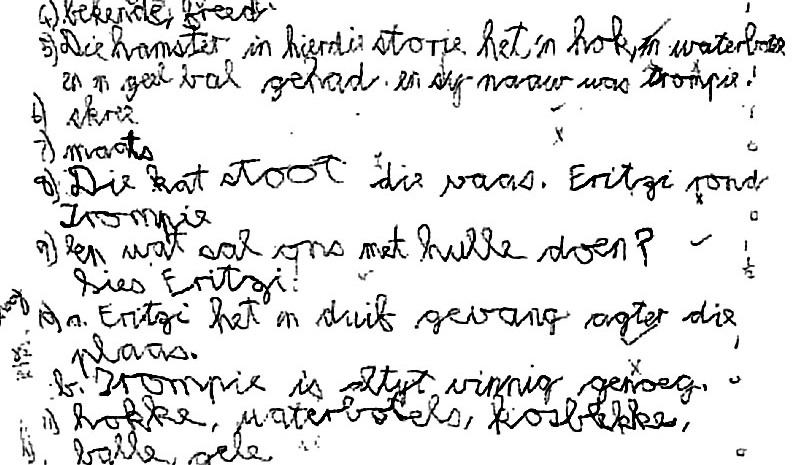 4) bekende, breed
5) Die hamster in hierdie storie het 'n hok, 'n waterbore
en 'n geel bal gehad. en sy naaw was trompie.
6) skree
7) maats
8) Die kat stoot die vaas. Eritzi rond
Trompie
9) Een wat sal ons met hulle doen?
Sies Eritzi!
10) a. Eritzi het 'n duif gevang agter die
plaas.
b. Trompie is altyt vinnig genoeg.
11) hokke, waterbotels, kosbekke,
balle, gele